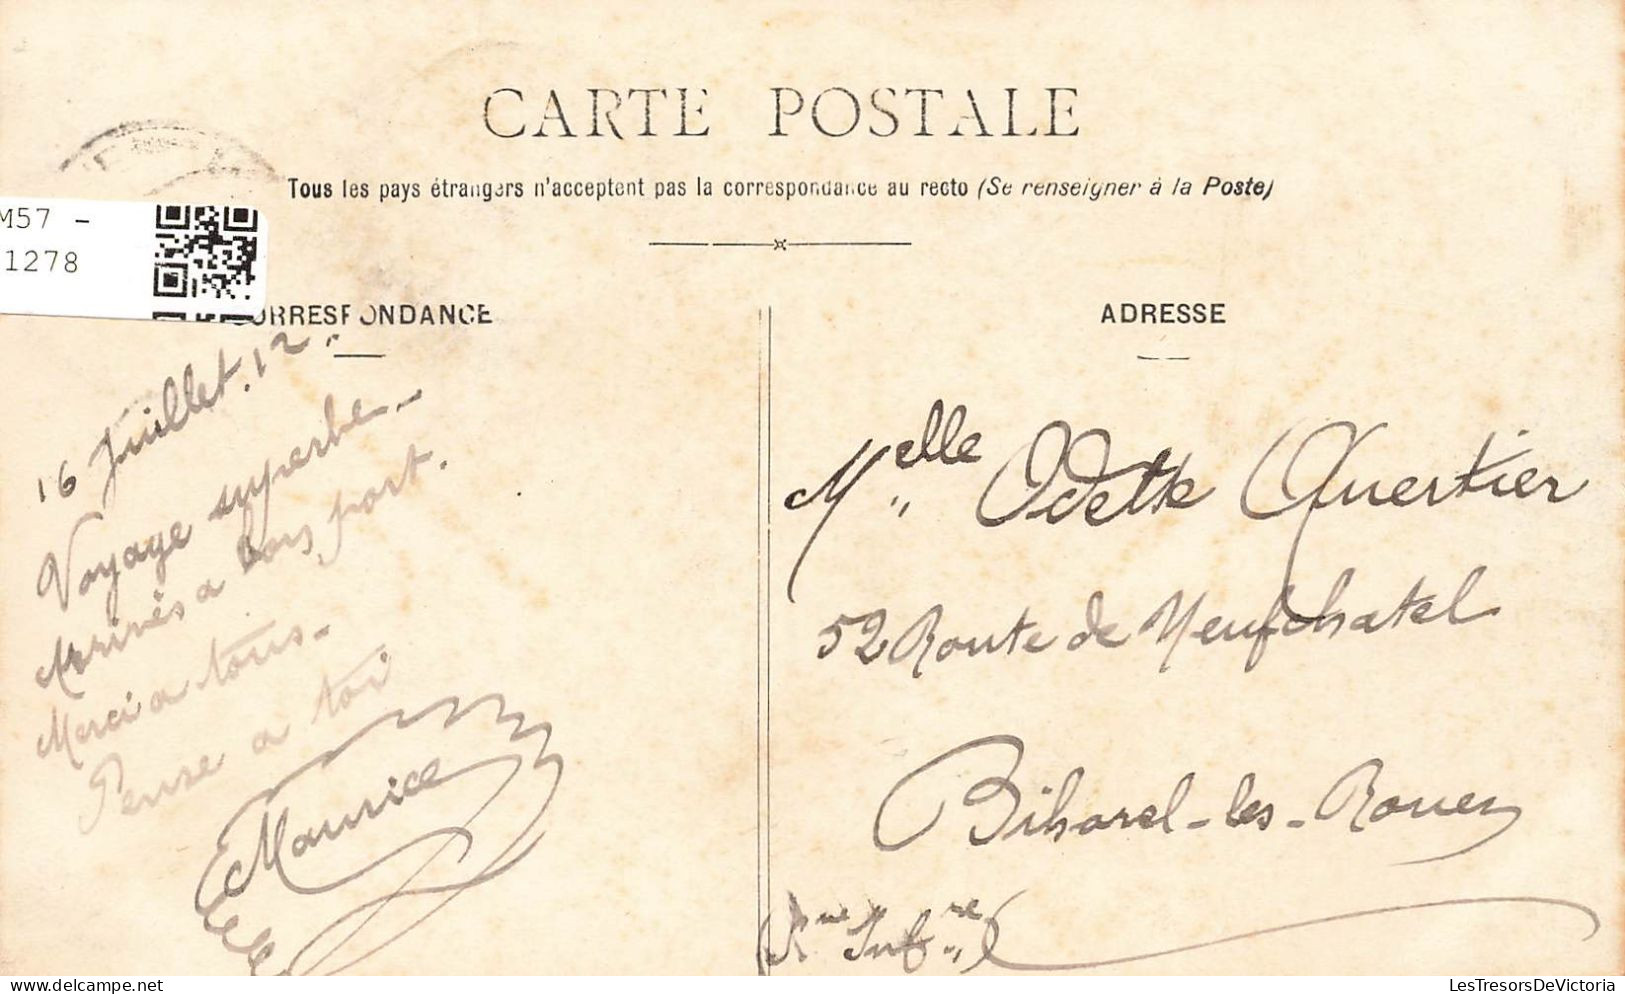 CARTE POSTALE
Tous les pays étrangers n'acceptent pas la correspondance au recto (Se renseigner à la Poste)
M57 -
1278
CORRESPONDANCE
16 Juillet. 12.
Voyage superbe -
Arrivés a bons port.
Merci a tous -
Pense a toi
Maurice
ADRESSE
Melle Odette Quertier
52 Route de Neufchatel
Bihorel-les-Rouen
(Sne Infre)
LesTresorsDeVictoria